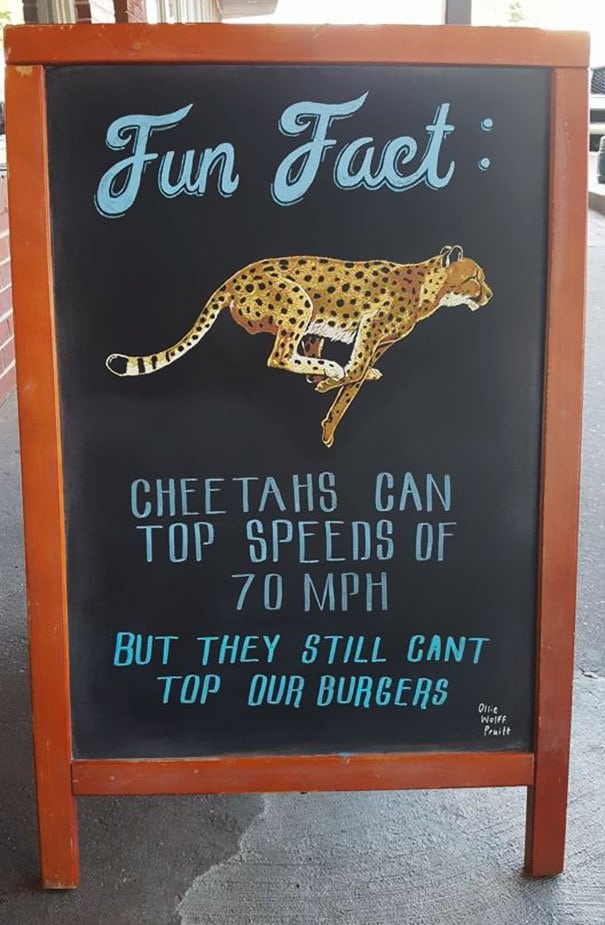 Fun Fact:
CHEETAHS CAN
TOP SPEEDS OF
70 MPH
BUT THEY STILL CANT
TOP OUR BURGERS
Ollie
Wolff
Pruitt